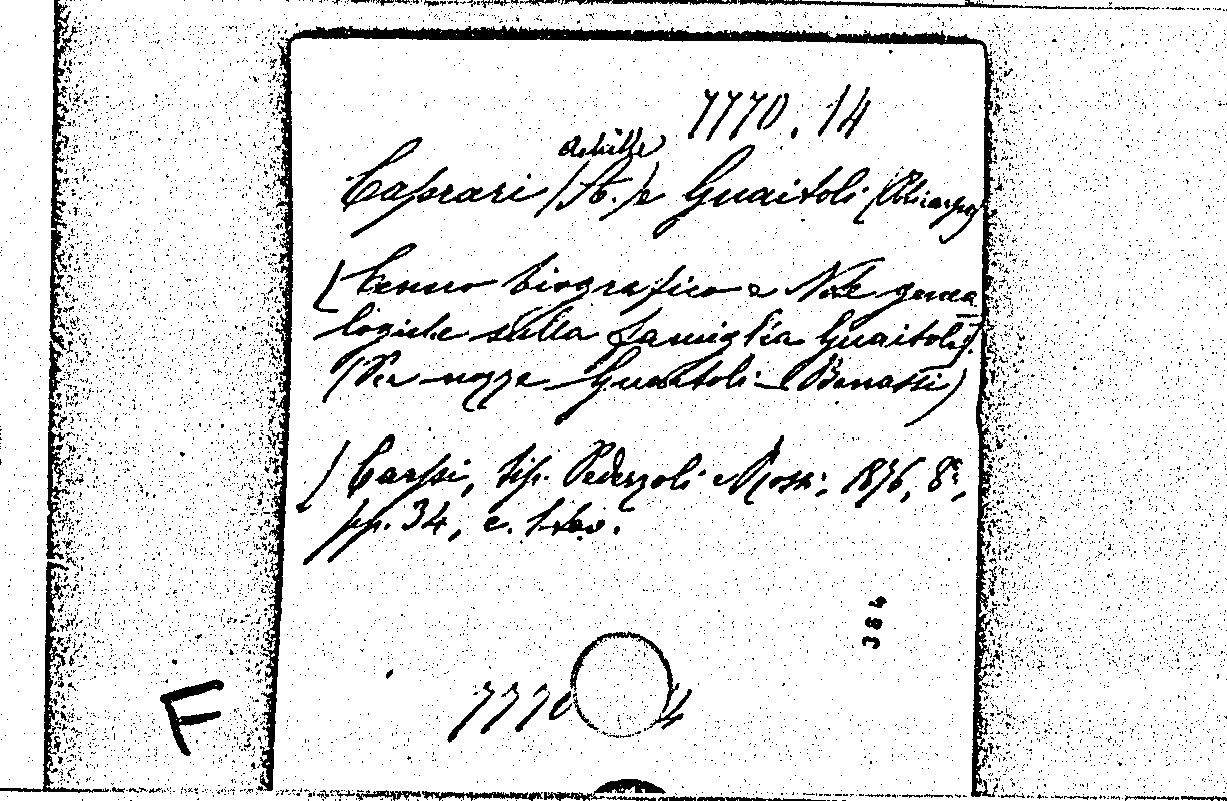 7770.14
Achille
Caprari (A.) e Guaitoli (Policarpo)
[Cenno biografico e Note genea
logiche sulla famiglia Guaitoli].
(Per nozze Guaitoli-Benassi)
Carpi, tip. Pederzoli e Rossi, 1876, 8°,
pp. 34, c.
384
7770 4
F